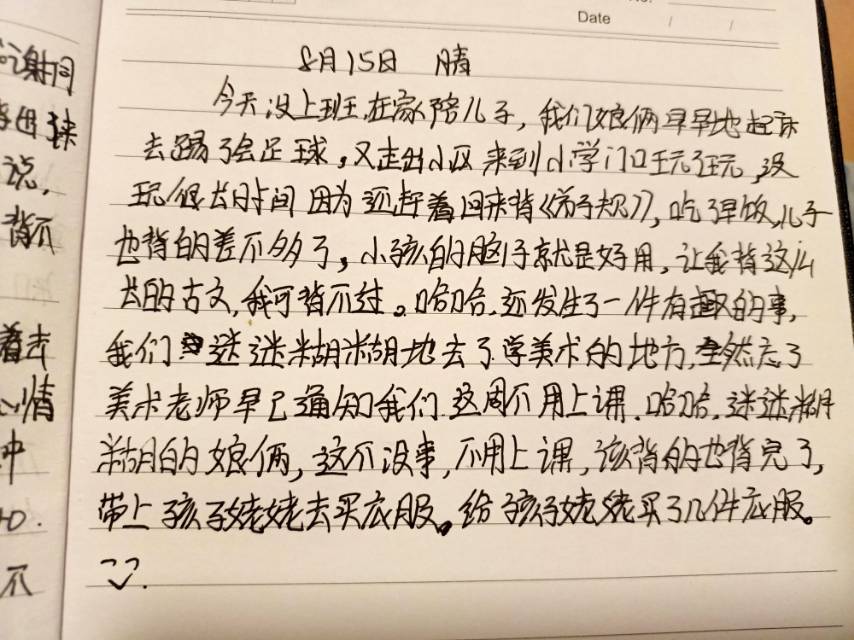 Date / /
8月15日 晴
今天没上班,在家陪儿子,我们娘俩早早地起床
去踢了会足球,又走出小区来到小学门口玩了玩,没
玩很长时间因为还赶着回来背《弟子规》,吃了早饭,儿子
也背的差不多了,小孩的脑子就是好用,让我背这么
长的古文,我可背不过。哈哈,还发生了一件有趣的事,
我们迷迷糊糊地去了学美术的地方,全然忘了
美术老师早已通知我们这周不用上课.哈哈,迷迷糊
糊的娘俩,这不没事,不用上课,该背的也背完了,
带上孩子姥姥去买衣服。给孩子姥姥买了几件衣服。
谢同
说,
背不
着去
心情
中
不